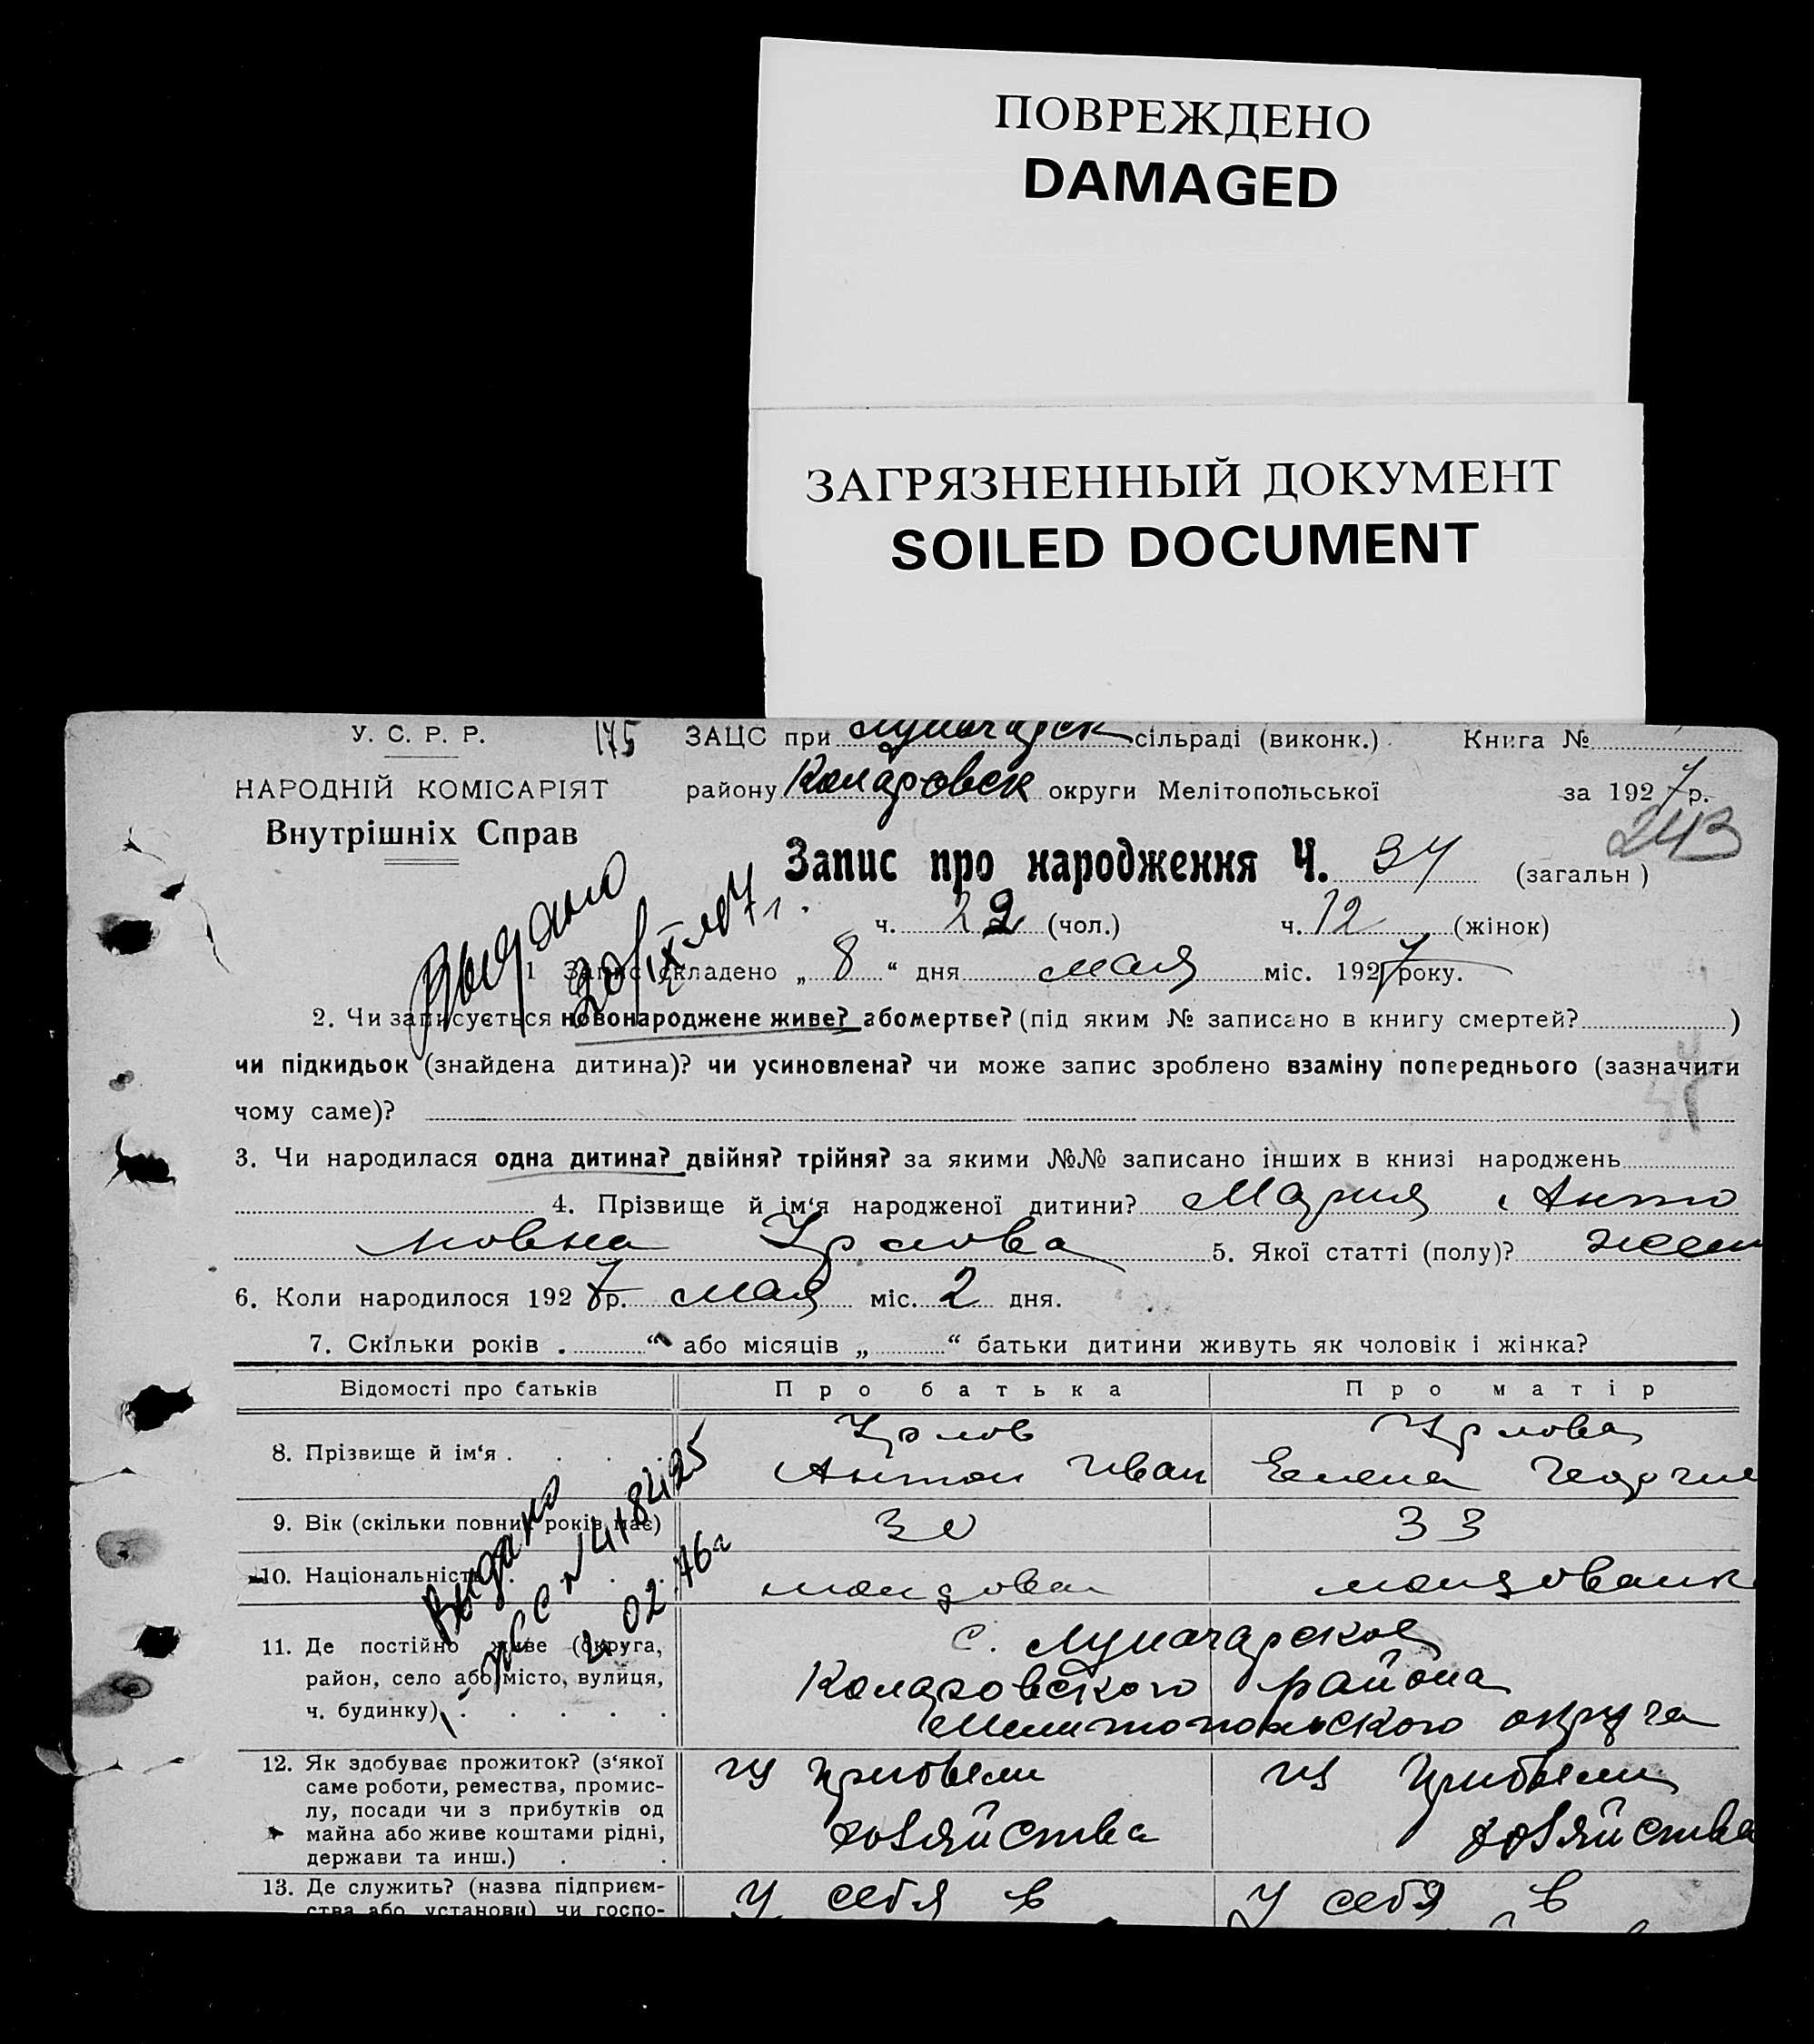 ПОВРЕЖДЕНО
DAMAGED
ЗАГРЯЗНЕННЫЙ ДОКУМЕНТ
SOILED DOCUMENT
У. С. Р. Р. 175 ЗАЦС при Луначарск сільраді (виконк.) Книга №
НАРОДНІЙ КОМІСАРІЯТ району Коларовск округи Мелітопольської за 1927 р.
Внутрішніх Справ 243
Запис про народження Ч. 34 (загальн)
ч. 22 (чол.) ч. 12 (жінок)
Выдано
1 Запис складено „ 8 “ дня мая міс. 1927 року.
2. Чи записується новонароджене живе? або мертве? (під яким № записано в книгу смертей? )
чи підкидьок (знайдена дитина)? чи усиновлена? чи може запис зроблено взаміну попереднього (зазначити
чому саме)?
3. Чи народилася одна дитина? двійня? трійня? за якими №№ записано інших в книзі народжень
4. Прізвище й ім‘я народженої дитини? Мария Анто
новна Урлова 5. Якої статті (полу)? жен
6. Коли народилося 1927 р. мая міс. 2 дня.
7. Скільки років . “ або місяців „ “ батьки дитини живуть як чоловік і жінка?
Відомості про батьків Про батька Про матір
Урлов Урлова
8. Прізвище й ім‘я . . . . .
Антон Иван Елена Георгие
9. Вік (скільки повних років має) 30 33
10. Національність . . . . молдован молдованк
Выдано
№ 418425
02.76г
11. Де постійно живе (округа, с. Луначарское
район, село або місто, вулиця, Коларовского района
ч. будинку) . . . . . Мелитопольского округа
12. Як здобуває прожиток? (з‘якої из прибыли из прибыли
саме роботи, ремества, промис-
лу, посади чи з прибутків од
майна або живе коштами рідні, хозяйства хозяйства
держави та инш.) . .
13. Де служить? (назва підприєм- У себя в У себя в
ства або установи) чи госпо-